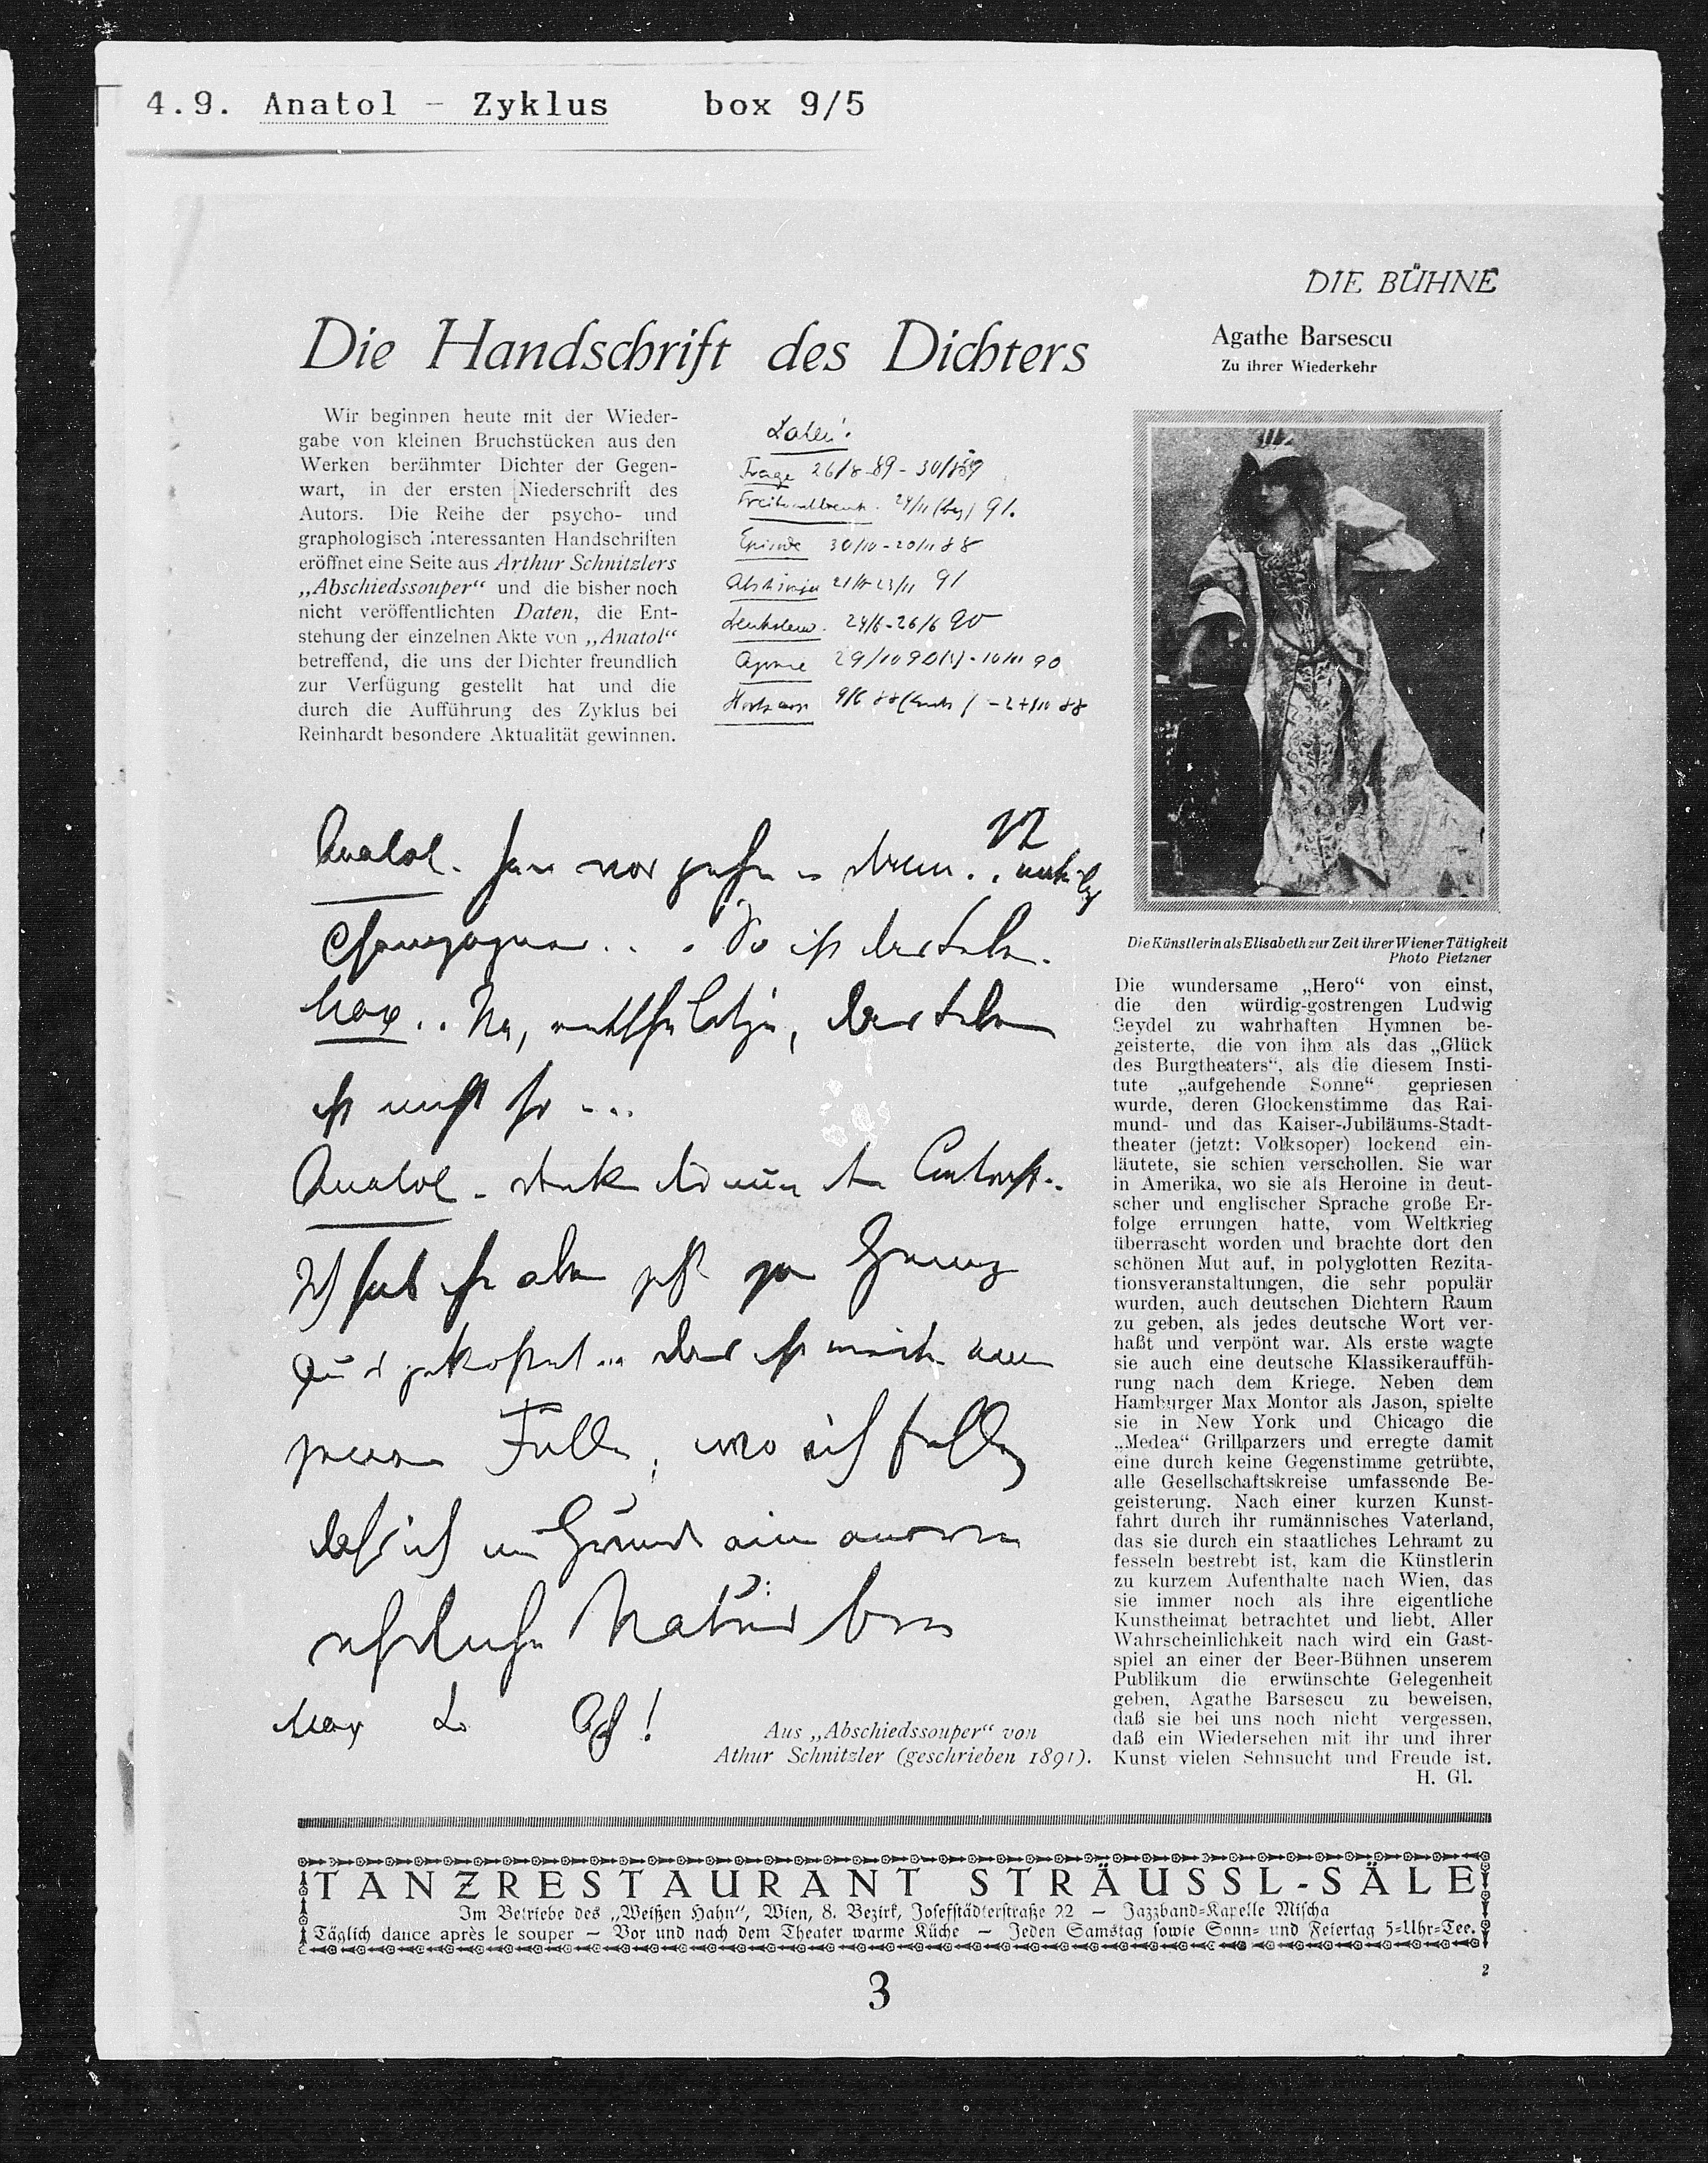 4.9. Anatol - Zyklus box 9/5
DIE BÜHNE
Die Handschrift des Dichters
Wir beginnen heute mit der Wieder-
gabe von kleinen Bruchstücken aus den
Werken berühmter Dichter der Gegen-
wart, in der ersten Niederschrift des
Autors. Die Reihe der psycho- und
graphologisch interessanten Handschriften
eröffnet eine Seite aus Arthur Schnitzlers
„Abschiedssouper“ und die bisher noch
nicht veröffentlichten Daten, die Ent-
stehung der einzelnen Akte von „Anatol“
betreffend, die uns der Dichter freundlich
zur Verfügung gestellt hat und die
durch die Aufführung des Zyklus bei
Reinhardt besondere Aktualität gewinnen.
Daten:
Frage 26/8 89 - 30/8 89
24/11 91.
Episode 30/10 - 20/11 88
23/11 91
24/6 - 26/6 90
Agonie 29/10 90 - 90
9/6 88 - 88
12
Anatol.
Champagner . . . So ist das Leben.
Max . . Na, das Leben
ist nicht so ...
Anatol.
Ich hab
... das ist
Fälle, wo ich
daß ich im Grunde eine
Natur bin
Max
Aus „Abschiedssouper“ von
Athur Schnitzler (geschrieben 1891).
Agathe Barsescu
Zu ihrer Wiederkehr
Die Künstlerin als Elisabeth zur Zeit ihrer Wiener Tätigkeit
Photo Pietzner
Die wundersame „Hero“ von einst,
die den würdig-gestrengen Ludwig
Seydel zu wahrhaften Hymnen be-
geisterte, die von ihm als das „Glück
des Burgtheaters“, als die diesem Insti-
tute „aufgehende Sonne“ gepriesen
wurde, deren Glockenstimme das Rai-
mund- und das Kaiser-Jubiläums-Stadt-
theater (jetzt: Volksoper) lockend ein-
läutete, sie schien verschollen. Sie war
in Amerika, wo sie als Heroine in deut-
scher und englischer Sprache große Er-
folge errungen hatte, vom Weltkrieg
überrascht worden und brachte dort den
schönen Mut auf, in polyglotten Rezita-
tionsveranstaltungen, die sehr populär
wurden, auch deutschen Dichtern Raum
zu geben, als jedes deutsche Wort ver-
haßt und verpönt war. Als erste wagte
sie auch eine deutsche Klassikerauffüh-
rung nach dem Kriege. Neben dem
Hamburger Max Montor als Jason, spielte
sie in New York und Chicago die
„Medea“ Grillparzers und erregte damit
eine durch keine Gegenstimme getrübte,
alle Gesellschaftskreise umfassende Be-
geisterung. Nach einer kurzen Kunst-
fahrt durch ihr rumännisches Vaterland,
das sie durch ein staatliches Lehramt zu
fesseln bestrebt ist, kam die Künstlerin
zu kurzem Aufenthalte nach Wien, das
sie immer noch als ihre eigentliche
Kunstheimat betrachtet und liebt. Aller
Wahrscheinlichkeit nach wird ein Gast-
spiel an einer der Beer-Bühnen unserem
Publikum die erwünschte Gelegenheit
geben, Agathe Barsescu zu beweisen,
daß sie bei uns noch nicht vergessen,
daß ein Wiedersehen mit ihr und ihrer
Kunst vielen Sehnsucht und Freude ist.
H. Gl.
TANZRESTAURANT STRÄUSSL-SÄLE
Im Betriebe des „Weißen Hahn“, Wien, 8. Bezirk, Josefstädterstraße 22 — Jazzband-Kapelle Mischa
Täglich dance après le souper — Vor und nach dem Theater warme Küche — Jeden Samstag sowie Sonn- und Feiertag 5-Uhr-Tee.
2
3